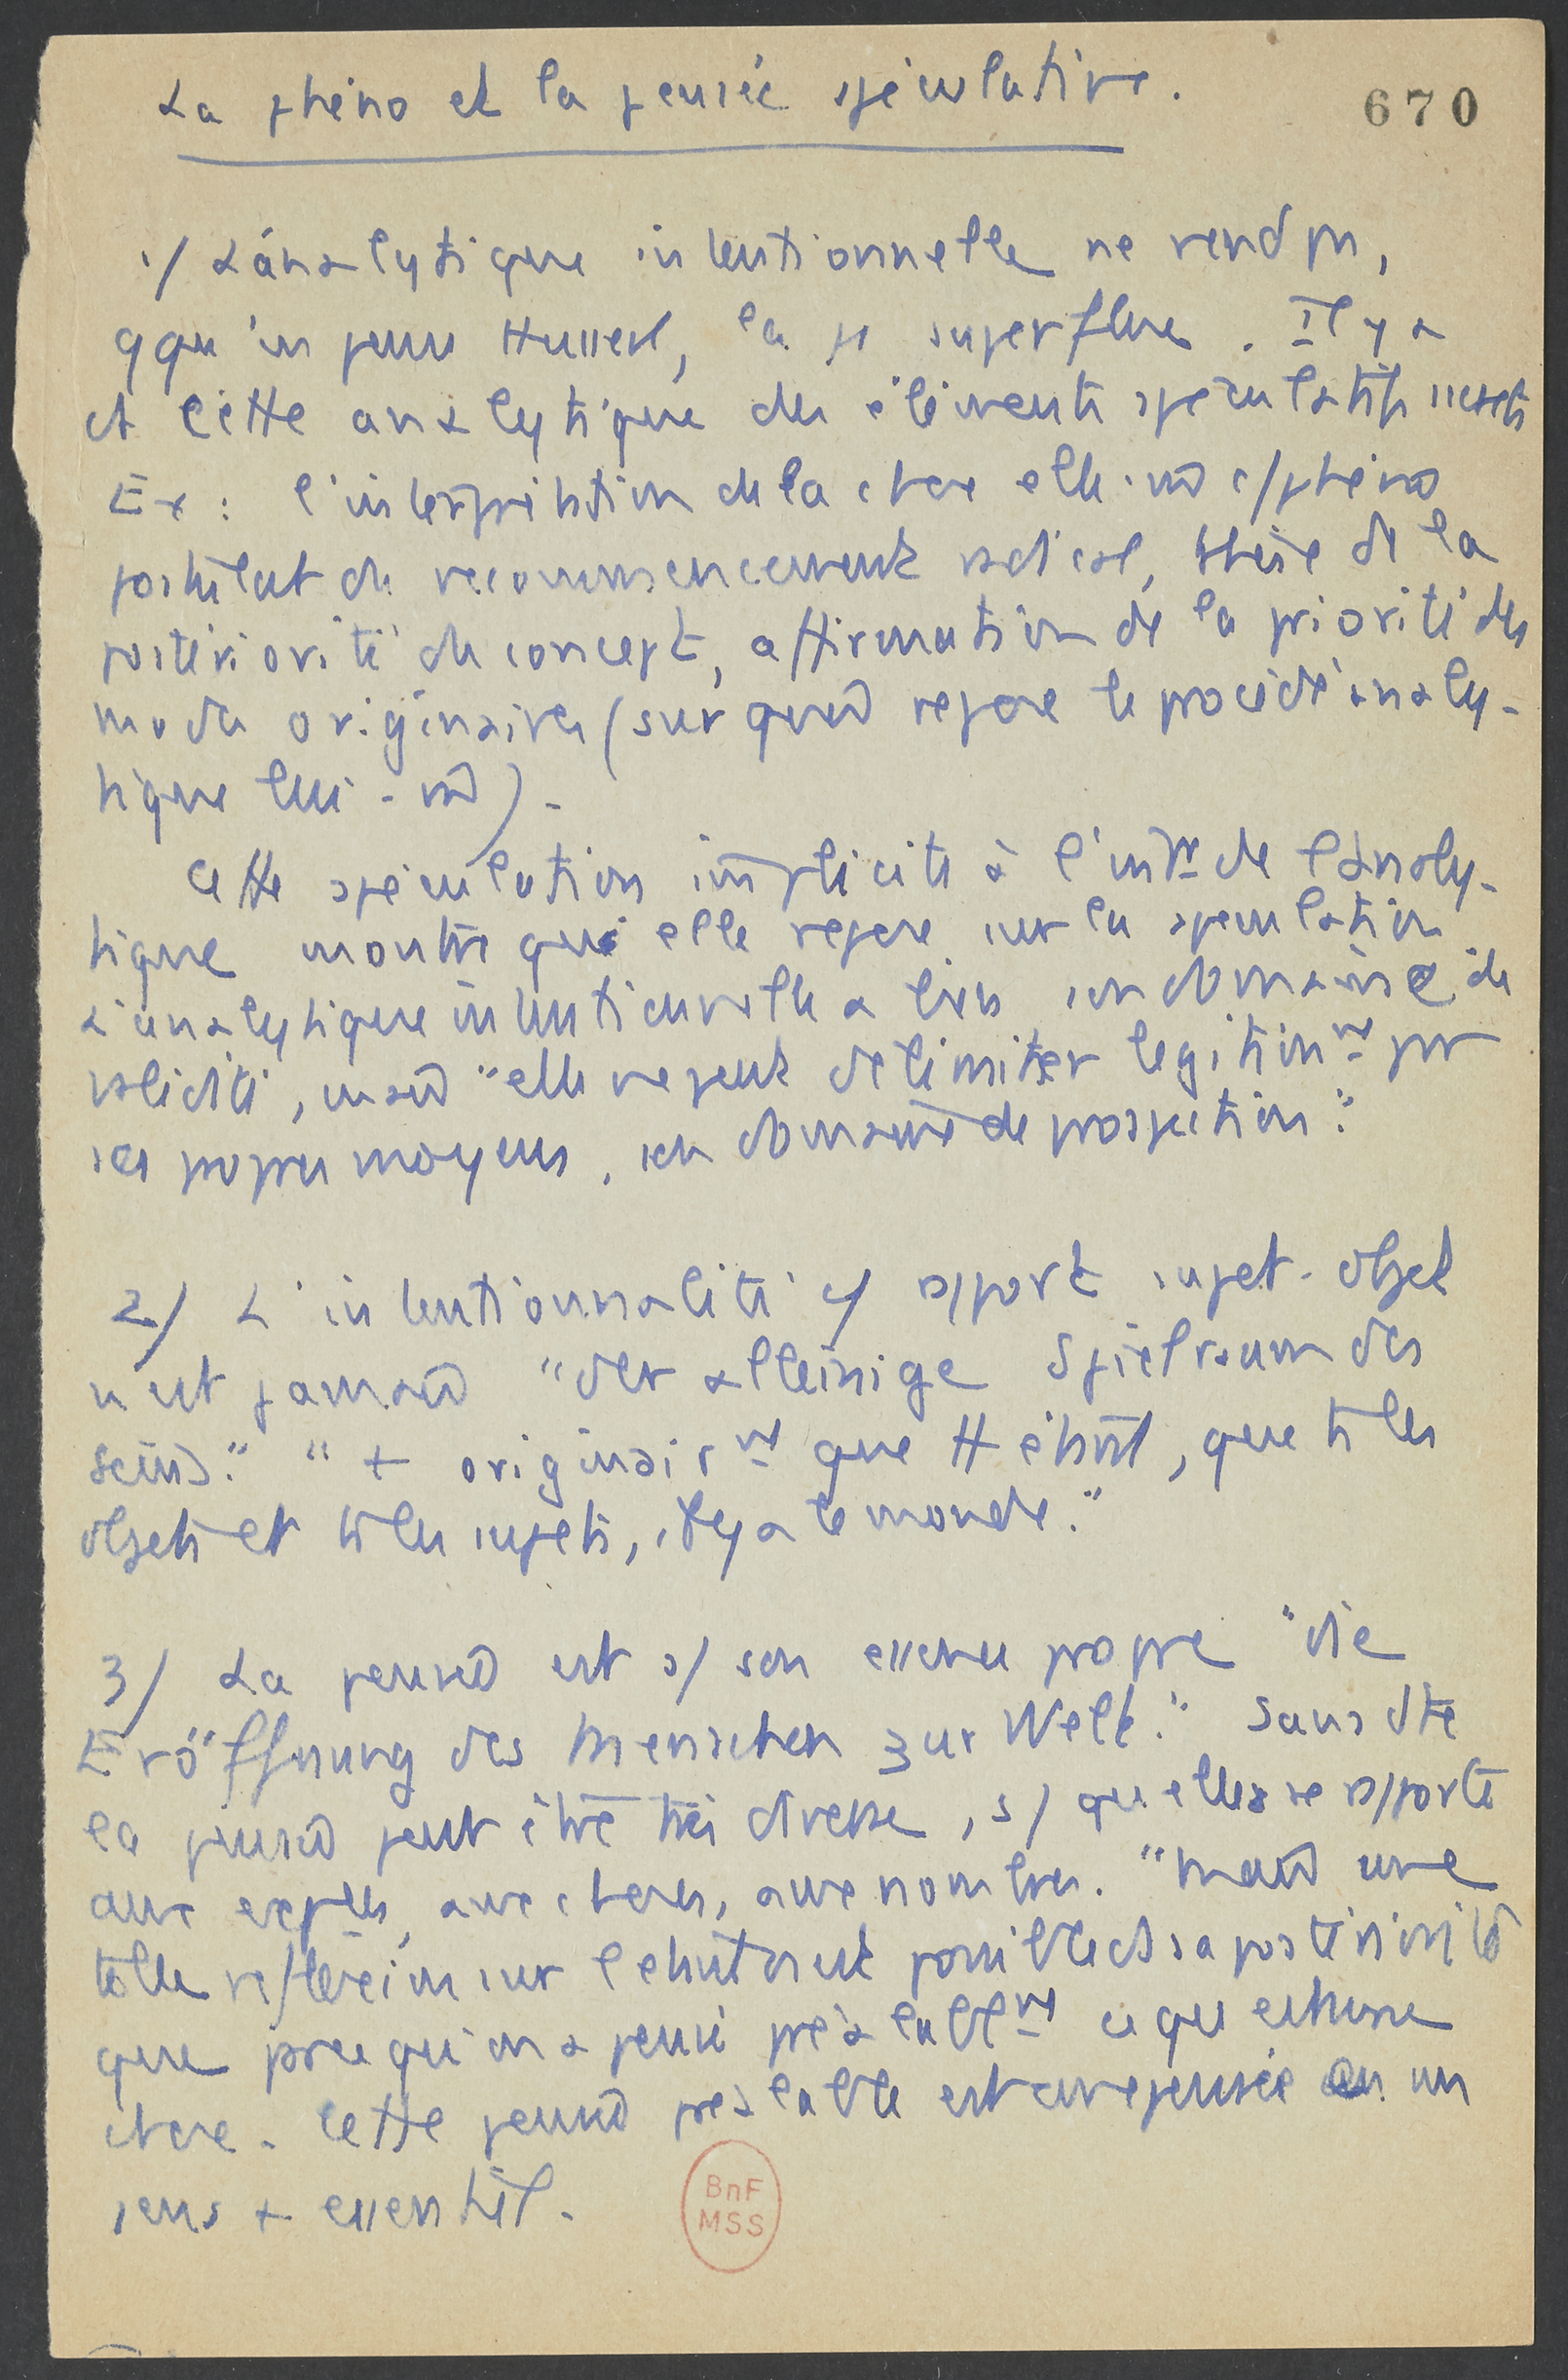 La phéno et la pensée spéculative.
670
1/ L'analytique intentionnelle ne rend pas,
qqu'en pense Husserl, la φ superflue. Il y a
ds cette analytique des éléments spéculatifs secrets
Ex : l'interprétation de la chose elle-m̂ c/ phéno
postulat du recommencement radical, thèse de la
postériorité du concept, affirmation de la priorité des
modes originaires (sur quoi repose le procédé analy-
tique lui-m̂).
Cette spéculation implicite à l'intr de l'analy-
tique montre qu'elle repose sur la spéculation.
L'analytique intentionnelle a bien son domaine de
validité, mais "elle ne peut délimiter légitimnt par
ses propres moyens, son domaine de prospection."
2/ L'intentionnalité c/ rapport sujet-objet
n'est jamais "der alleinige Spielraum des
Seins." "+ originairnt que tt étant, que ts les
objets et ts les sujets, il y a le monde."
3/ La pensée est ds son essence propre "die
Eröffnung des Menschen zur Welt." Sans dte
la pensée peut être très diverse, s/ qu'elle se rapporte
aux espèces, aux choses, aux nombres. "Mais une
telle réflexion sur l'étant n'est possible ds sa postériorité
que parce qu'on a pensé préalablnt ce qu'est une
chose. Cette pensée préalable est une pensée en un
sens + essentiel.
BnF
MSS